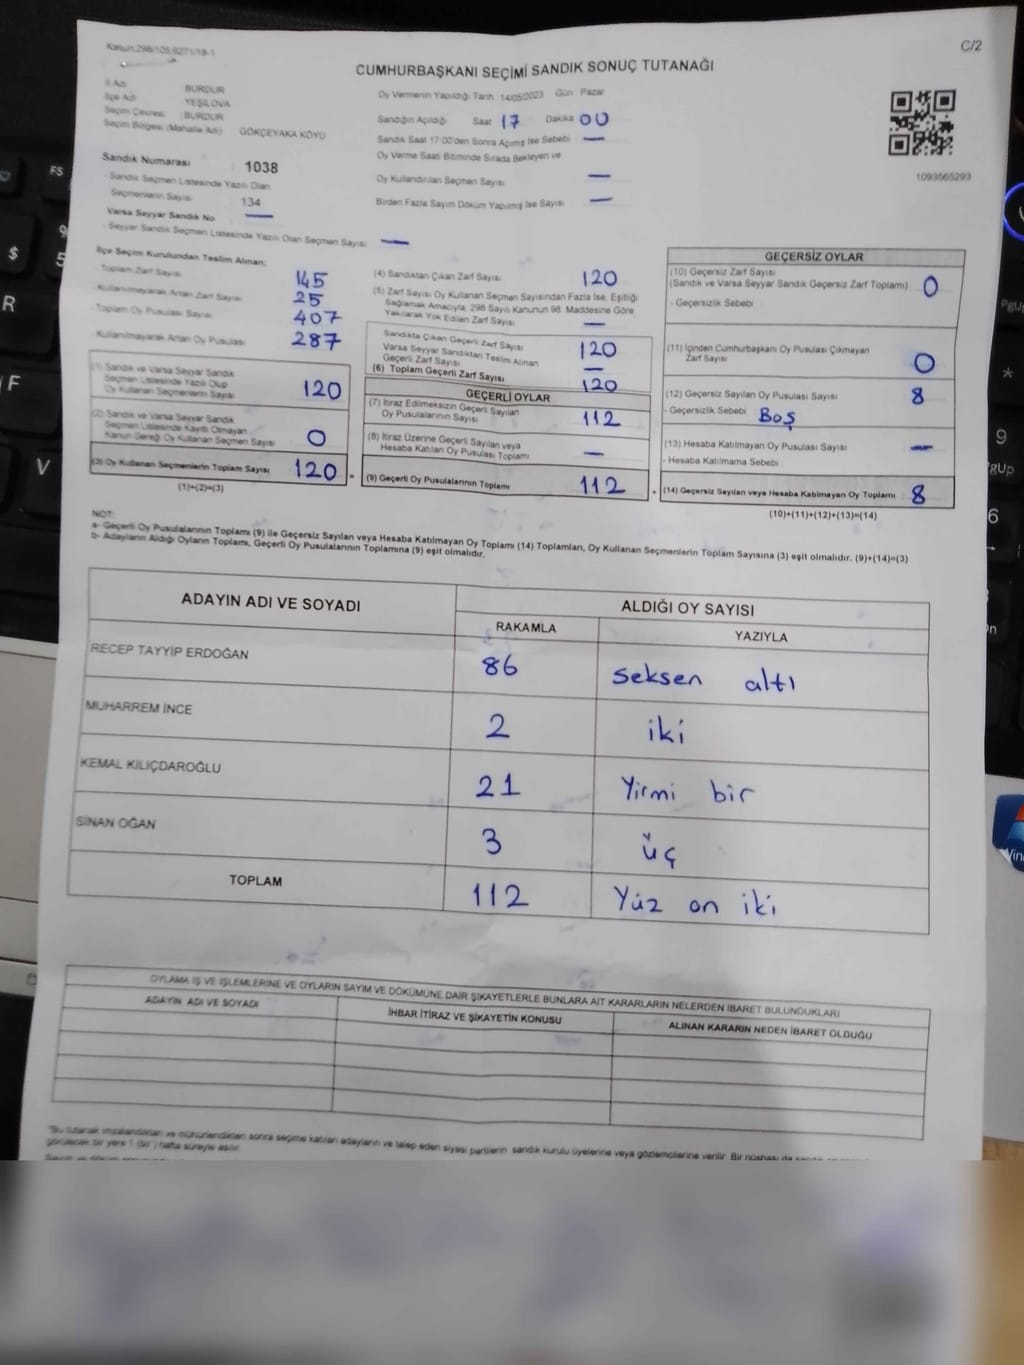 Kanun:298/105,6271/18-1
C/2
CUMHURBAŞKANI SEÇİMİ SANDIK SONUÇ TUTANAĞI
İl Adı BURDUR
İlçe Adı YEŞİLOVA
Seçim Çevresi BURDUR
Seçim Bölgesi (Mahalle Adı) GÖKÇEYAKA KÖYÜ
Sandık Numarası : 1038
Sandık Seçmen Listesinde Yazılı Olan
Seçmenlerin Sayısı 134
Varsa Seyyar Sandık No —
Seyyar Sandık Seçmen Listesinde Yazılı Olan Seçmen Sayısı —
Oy Vermenin Yapıldığı Tarih 14/05/2023 Gün : Pazar
Sandığın Açıldığı Saat 17 Dakika 00
Sandık Saat 17:00'den Sonra Açılmış İse Sebebi —
Oy Verme Saati Bitiminde Sırada Bekleyen ve
Oy Kullandırılan Seçmen Sayısı —
Birden Fazla Sayım Döküm Yapılmış İse Sayısı —
1093565293
İlçe Seçim Kurulundan Teslim Alınan;
- Toplam Zarf Sayısı 145
- Kullanılmayarak Artan Zarf Sayısı 25
- Toplam Oy Pusulası Sayısı 407
- Kullanılmayarak Artan Oy Pusulası 287
(1) Sandık ve Varsa Seyyar Sandık
Seçmen Listesinde Yazılı Olup
Oy Kullanan Seçmenlerin Sayısı 120
(2) Sandık ve Varsa Seyyar Sandık
Seçmen Listesinde Kayıtlı Olmayan
Kanun Gereği Oy Kullanan Seçmen Sayısı 0
(3) Oy Kullanan Seçmenlerin Toplam Sayısı 120
(1)+(2)=(3)
(4) Sandıktan Çıkan Zarf Sayısı 120
(5) Zarf Sayısı Oy Kullanan Seçmen Sayısından Fazla İse, Eşitliği
Sağlamak Amacıyla, 298 Sayılı Kanunun 98. Maddesine Göre
Yakılarak Yok Edilen Zarf Sayısı —
Sandıkta Çıkan Geçerli Zarf Sayısı 120
Varsa Seyyar Sandıktan Teslim Alınan
Geçerli Zarf Sayısı —
(6) Toplam Geçerli Zarf Sayısı 120
GEÇERLİ OYLAR
(7) İtiraz Edilmeksizin Geçerli Sayılan
Oy Pusulalarının Sayısı 112
(8) İtiraz Üzerine Geçerli Sayılan veya
Hesaba Katılan Oy Pusulası Toplamı —
(9) Geçerli Oy Pusulalarının Toplamı 112
GEÇERSİZ OYLAR
(10) Geçersiz Zarf Sayısı
(Sandık ve Varsa Seyyar Sandık Geçersiz Zarf Toplamı) 0
- Geçersizlik Sebebi
(11) İçinden Cumhurbaşkanı Oy Pusulası Çıkmayan
Zarf Sayısı 0
(12) Geçersiz Sayılan Oy Pusulası Sayısı 8
- Geçersizlik Sebebi Boş
(13) Hesaba Katılmayan Oy Pusulası Sayısı —
- Hesaba Katılmama Sebebi
(14) Geçersiz Sayılan veya Hesaba Katılmayan Oy Toplamı 8
(10)+(11)+(12)+(13)=(14)
NOT:
a- Geçerli Oy Pusulalarının Toplamı (9) ile Geçersiz Sayılan veya Hesaba Katılmayan Oy Toplamı (14) Toplamları, Oy Kullanan Seçmenlerin Toplam Sayısına (3) eşit olmalıdır. (9)+(14)=(3)
b- Adayların Aldığı Oyların Toplamı, Geçerli Oy Pusulalarının Toplamına (9) eşit olmalıdır.
ADAYIN ADI VE SOYADI
ALDIĞI OY SAYISI
RAKAMLA YAZIYLA
RECEP TAYYİP ERDOĞAN 86 seksen altı
MUHARREM İNCE 2 iki
KEMAL KILIÇDAROĞLU 21 Yirmi bir
SİNAN OĞAN 3 üç
TOPLAM 112 Yüz on iki
OYLAMA İŞ VE İŞLEMLERİNE VE OYLARIN SAYIM VE DÖKÜMÜNE DAİR ŞİKAYETLERLE BUNLARA AİT KARARLARIN NELERDEN İBARET BULUNDUKLARI
ADAYIN ADI VE SOYADI İHBAR İTİRAZ VE ŞİKAYETİN KONUSU ALINAN KARARIN NEDEN İBARET OLDUĞU
*Bu tutanak imzalandıktan ve mühürlendikten sonra seçime katılan adayların ve talep eden siyasi partilerin sandık kurulu üyelerine veya gözlemcilerine verilir. Bir nüshası da
görülecek bir yere 1 (bir) hafta süreyle asılır.
F5
$
R
F
V
9
5
PgUp
*
9
PgUp
6